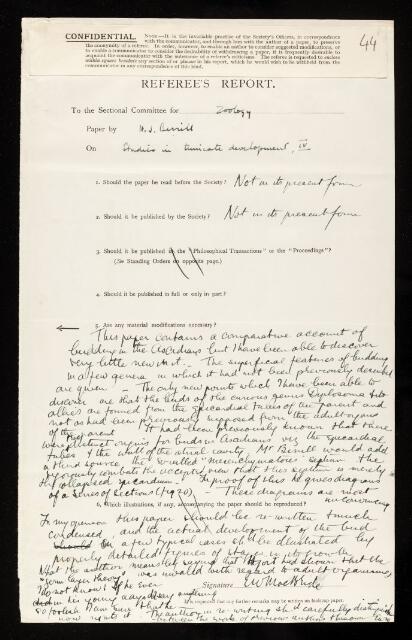 CONFIDENTIAL.
NOTE—It is the invariable practice of the Society's Officers, in correspondence
with the communicator, and through him with the author of a paper, to preserve
the anonymity of a referee. In order, however, to enable an author to consider suggested modifications, or
to enable a communicator to consider the desirability of withdrawing a paper, it is frequently desirable to
acquaint the communicator with the substance of a referee's criticisms. The referee is requested to enclose
within square brackets any section of or phrase in his report, which he would wish to be withheld from the
communicator in any correspondence of this kind.
44
REFEREE'S REPORT.
To the Sectional Committee for Zoology
Paper by N. J. Berrill
On Studies in tunicate development, IV
1. Should the paper be read before the Society? Not in its present form
2. Should it be published by the Society? Not in its present form
3. Should it be published in the "Philosophical Transactions" or the "Proceedings"?
(See Standing Orders on opposite page.)
4. Should it be published in full or only in part?
5. Are any material modifications necessary?
This paper contains a comparative account of
budding in the Ascidians but I have been able to discover
very little new in it. The superficial features of budding
in a few genera in which it had not been previously described
are given - The only new points which I have been able to
discover are that the buds of the curious genus Diplosoma & its
allies are formed from the epicardial tubes of the parent and
not as had been previously supposed from the adult organs
of the parent. It had been previously known that there
were distinct origins for buds in Ascidians viz the epicardial
tubes & the wall of the atrial cavity. Mr Berrill would add
a third source the so-called "mesenchymatous" septum. He
vigorously combats the accepted view that this septum is merely
the collapsed epicardium. In proof of this he gives diagrams
of a series of sections (Fig 20). - These diagrams are most
unconvincing
6. Which illustrations, if any, accompanying the paper should be reproduced?
In my opinion this paper should be re-written & much
condensed, and the actual development of the bud
in a few typical cases should be illustrated by
properly detailed figures of stages in its growth.
What the author means by saying that
"germ layer theory" was invalid with regard to adult organisms,
I do not know! If he
in his young days
so foolish I am sure that he
now repeat it. The author in re-writing should carefully distinguish
between the work of previous authors
Signature E W MacBride